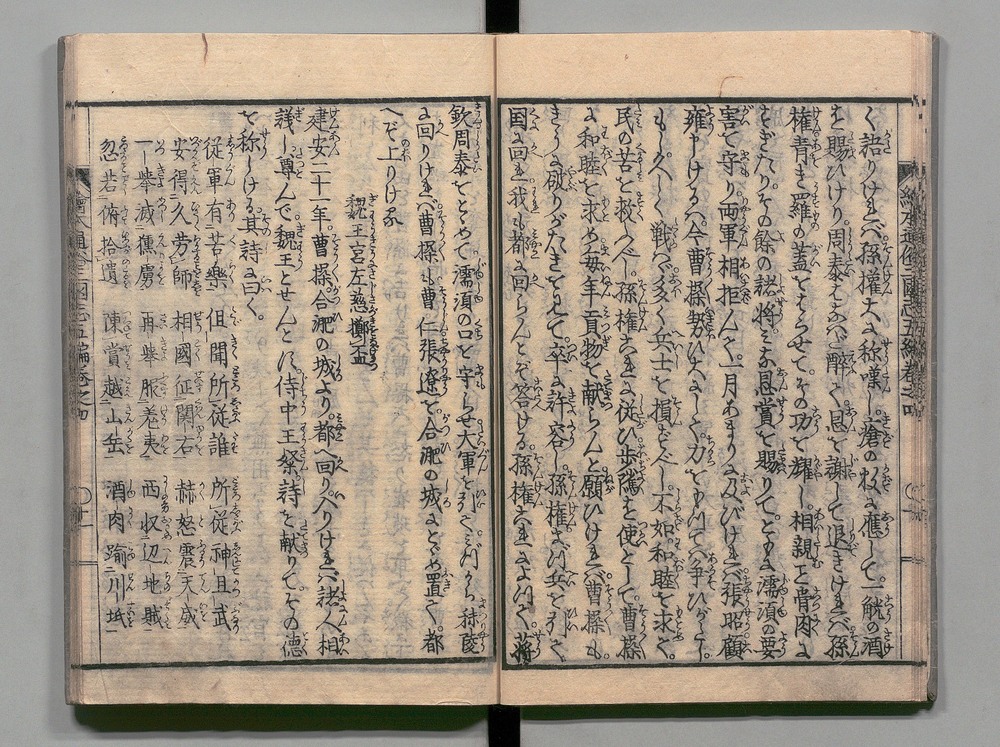 く語りければ孫權大に称嘆し。瘡の数に應して一觥の酒
を賜ひけり。周泰よろこび醉て恩を謝して退きければ孫
權青き羅の蓋をはらせて。その功を耀し。相親こと骨肉に
とぎたり。その餘の諸將にも恩賞を賜りて。ともに濡須の要
害を守り。両軍相拒んで。一月あまりに及びければ。張昭顧
雍申けるは。今曹操勢ひ大にして。力を以て争ひがたし。
もし久しく戰はゞ多く兵士を損ずべし。不如和睦を求て
民の苦を救べし。孫權これに從ひ歩隲を使として。曹操
に和睦を求め毎年貢物を献らんと願ひければ曹操も。
きうに破りがたきを見て。卒に許容し。孫權まづ兵を引て
国に回れ我も都に回らんとぞ答ける。孫權これによつて。蒋
欽周泰をとゞめて濡須の口を守らせ大軍を引て。みづから秣陵
に回りければ曹操も曹仁張遼を合淝の城にとゞめ置て。都
へぞ上りける
魏王宮左慈擲盃
建安二十一年。曹操。合淝の城より。都へ回り。入りければ諸人相
議し尊んで魏王とせんと。侍中王粲詩を献りて。その徳
を称しける。其詩に曰く。
從軍有苦樂 但聞所從誰 所從神且武
安得久労師 相國征関右 赫怒震天威
一擧滅獯虜 再擧服羌夷 西収辺地賊
忽若俯拾遺 陳賞越山岳 酒肉踰川坻
繪本通俗三國志五編卷之四